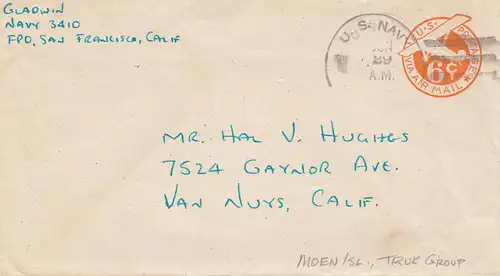 GLADWIN
NAVY 3410
FPO, SAN FRANCISCO, CALIF
U.S. NAV
JUN
29
A.M.
U.S. POSTAGE
6¢
VIA AIR MAIL
MR. HAL V. HUGHES
7524 GAYNOR AVE.
VAN NUYS, CALIF.
MOEN ISL., TRUK GROUP